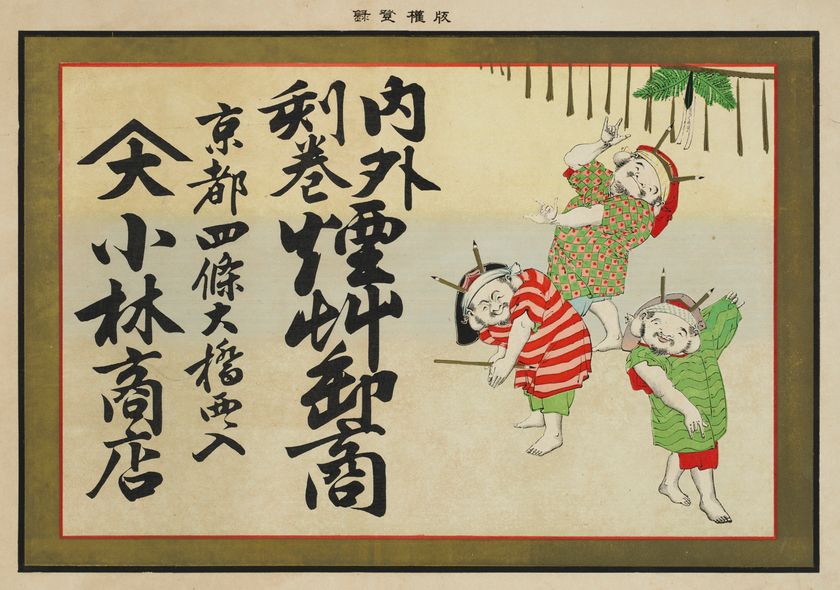 版權登錄
内外
刻巻
煙艸卸商
京都四條大橋西入
大
小林商店